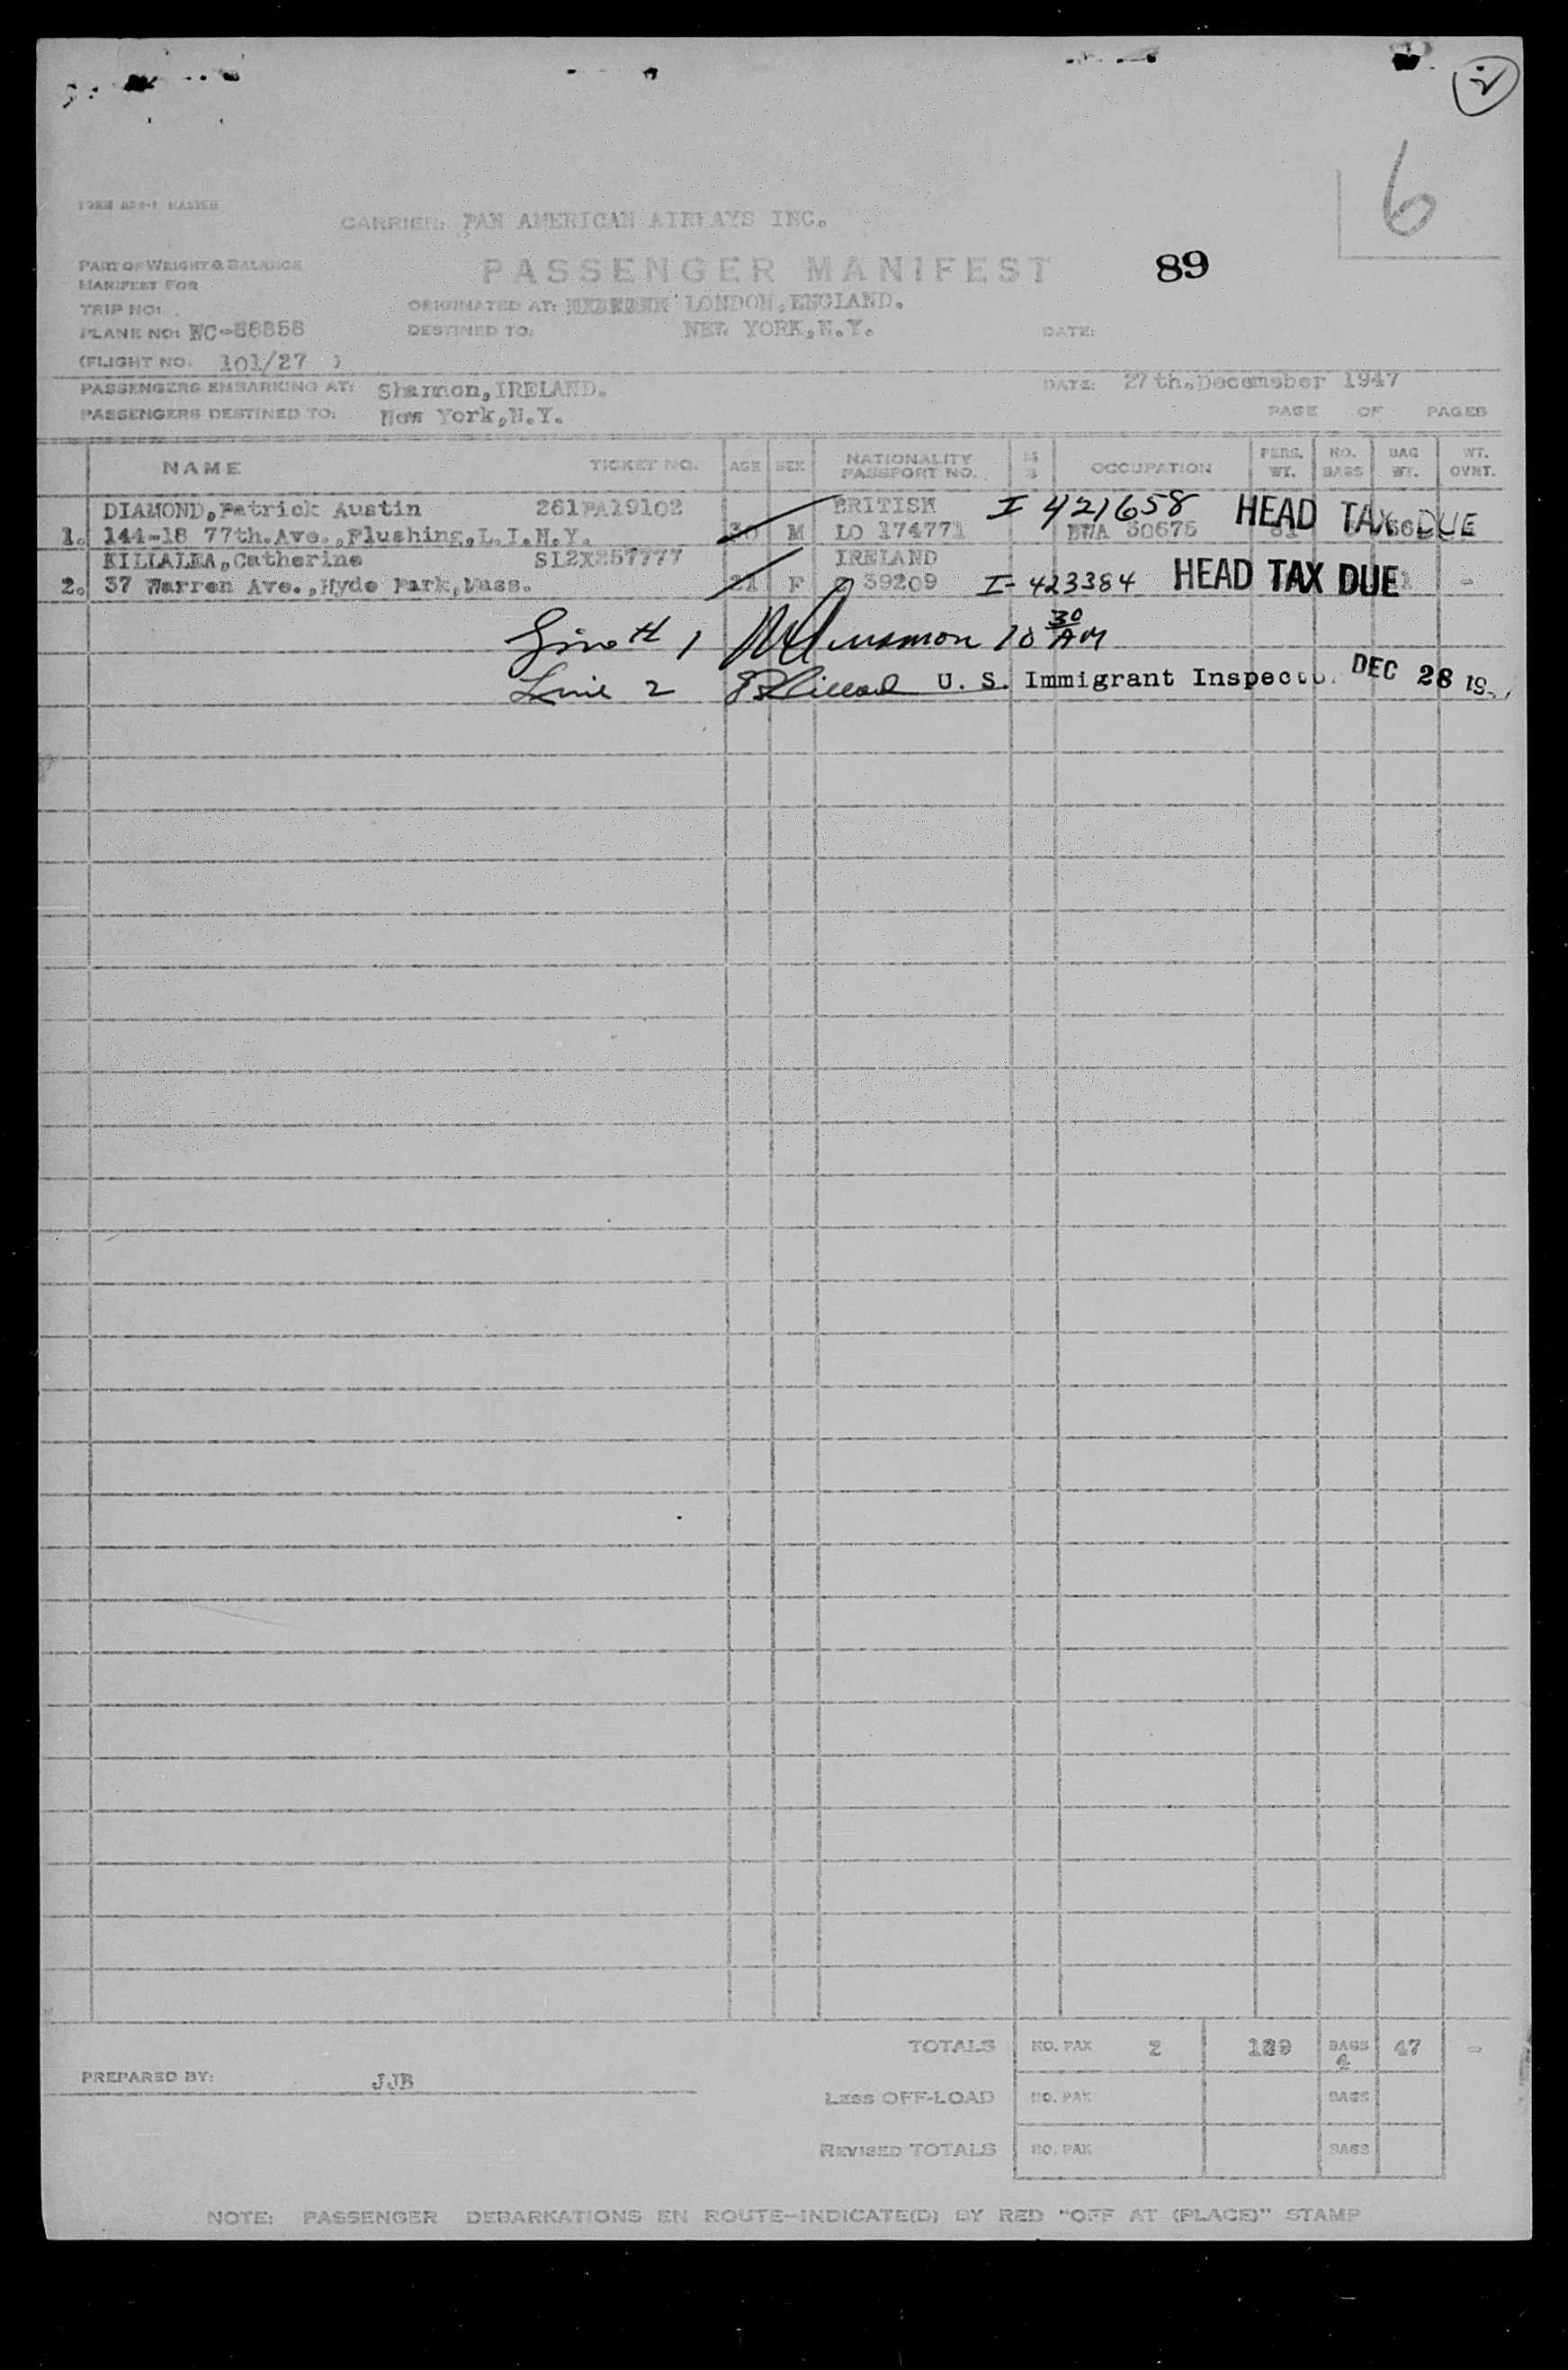 6
CARRIER: PAN AMERICAN AIRWAYS INC.
PASSENGER MANIFEST 89
PART OF WEIGHT & BALANCE
MANIFEST FOR
TRIP NO:
ORIGINATED AT: LONDON, ENGLAND.
PLANE NO: NC-88858 DESTINED TO: NEW YORK, N.Y. DATE:
(FLIGHT NO. 101/27 )
PASSENGERS EMBARKING AT: Shannon, IRELAND. DATE: 27th. Decemeber 1947
PASSENGERS DESTINED TO: New York, N.Y. PAGE OF PAGES
NAME TICKET NO. AGE SEX NATIONALITY PASSPORT NO. OCCUPATION PERS. WT. NO. BAGS BAG WT. WT. OVNT.
DIAMOND, Patrick Austin 261PA19102 BRITISH I 421658 HEAD TAX DUE
1. 144-18 77th. Ave., Flushing, L.I.N.Y. 30 M LO 174771
KILLALEA, Catherine SL2X257777 IRELAND
2. 37 Warren Ave., Hyde Park, Mass. 21 F 39209 I-423384 HEAD TAX DUE -
1 10 30 AM
Line 2 U. S. Immigrant Inspector DEC 28
TOTALS NO. PAX 2 129 BAGS 4 47 -
PREPARED BY: JJB
LESS OFF-LOAD NO. PAX BAGS
REVISED TOTALS NO. PAX BAGS
NOTE: PASSENGER DEBARKATIONS EN ROUTE-INDICATE(D) BY RED "OFF AT (PLACE)" STAMP